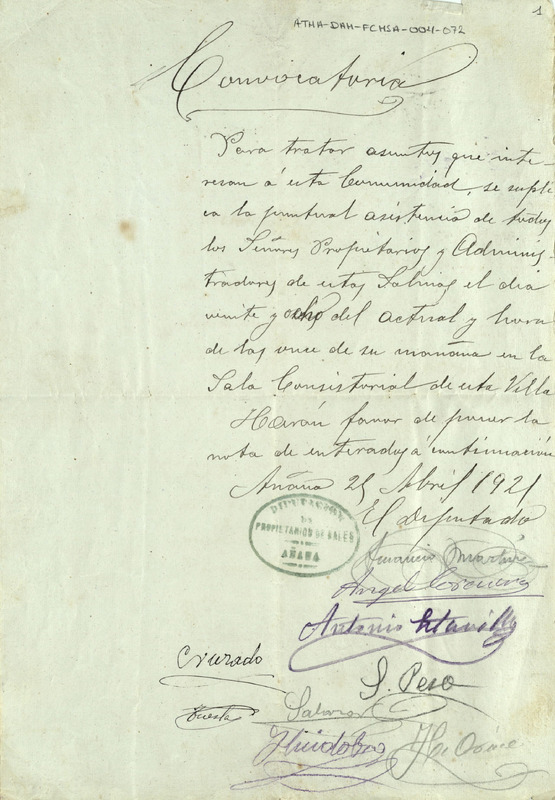 1
ATHA-DAH-FCHSA-004-072
Convocatoria
Para tratar asuntos que inte
resan á esta Comunidad, se supli
ca la puntual asistencia de todos
los Señores Propietarios y Adminis-
tradores de estas Salinas el dia
veinte y ocho del actual y hora
de las once de su mañana en la
Sala Consistorial de esta Villa
Harán favor de poner la
nota de enterados á continuación
Añana 25 Abril 1921
El Diputado
DIPUTACION
DE
PROPIETARIOS DE SALES
AÑANA
Angel
Antonio
Cruzado
S. Peso
Cuesta
Huidobro